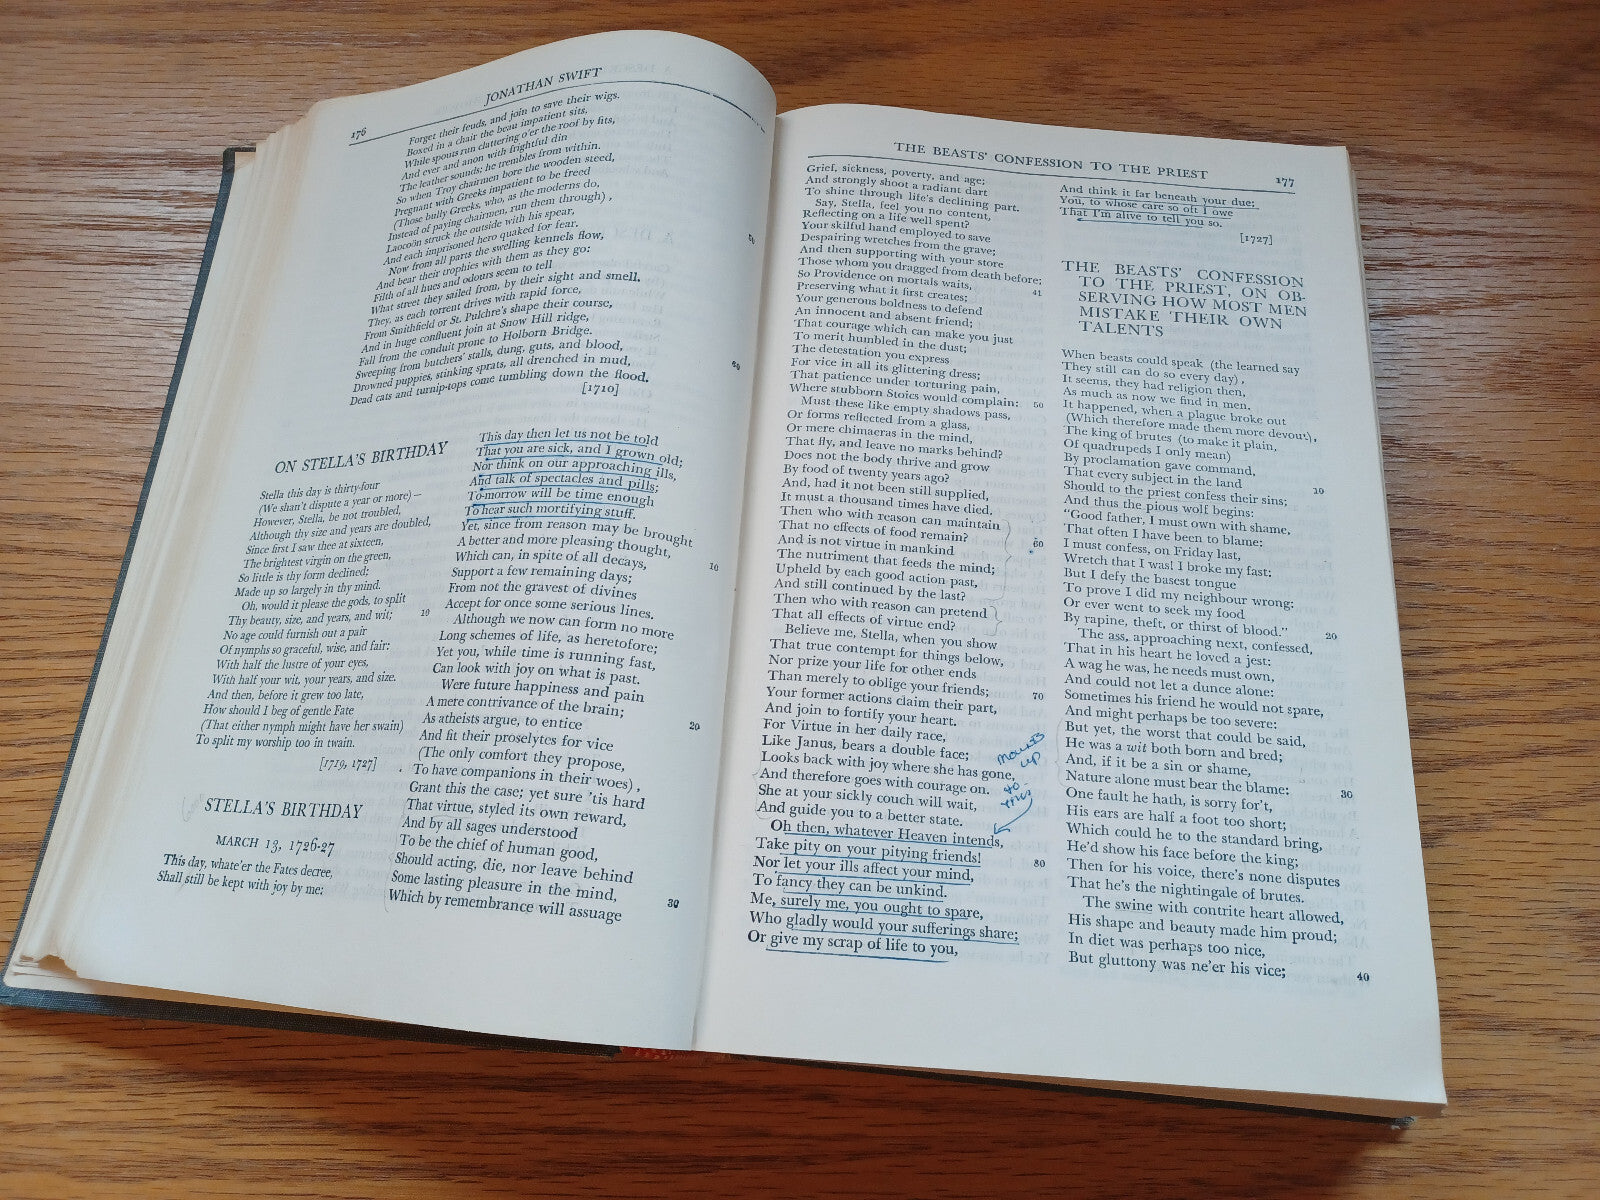 176
JONATHAN SWIFT
Forget their feuds, and join to save their wigs.
Boxed in a chair the beau impatient sits,
While spouts run clattering o'er the roof by fits,
And ever and anon with frightful din
The leather sounds; he trembles from within.
So when Troy chairmen bore the wooden steed,
Pregnant with Greeks impatient to be freed
(Those bully Greeks, who, as the moderns do,
Instead of paying chairmen, run them through),
Laocoön struck the outside with his spear,
And each imprisoned hero quaked for fear. 50
Now from all parts the swelling kennels flow,
And bear their trophies with them as they go:
Filth of all hues and odours seem to tell
What street they sailed from, by their sight and smell.
They, as each torrent drives with rapid force,
From Smithfield or St. Pulchre's shape their course,
And in huge confluent join at Snow Hill ridge,
Fall from the conduit prone to Holborn Bridge.
Sweeping from butchers' stalls, dung, guts, and blood,
Drowned puppies, stinking sprats, all drenched in mud, 60
Dead cats and turnip-tops come tumbling down the flood.
[1710]
ON STELLA'S BIRTHDAY
Stella this day is thirty-four
(We shan't dispute a year or more)—
However, Stella, be not troubled,
Although thy size and years are doubled,
Since first I saw thee at sixteen,
The brightest virgin on the green,
So little is thy form declined;
Made up so largely in thy mind.
Oh, would it please the gods, to split
Thy beauty, size, and years, and wit; 10
No age could furnish out a pair
Of nymphs so graceful, wise, and fair:
With half the lustre of your eyes,
With half your wit, your years, and size.
And then, before it grew too late,
How should I beg of gentle Fate
(That either nymph might have her swain)
To split my worship too in twain.
[1719, 1727]
STELLA'S BIRTHDAY
MARCH 13, 1726-27
This day, whate'er the Fates decree,
Shall still be kept with joy by me;
This day then let us not be told
That you are sick, and I grown old;
Nor think on our approaching ills,
And talk of spectacles and pills;
To-morrow will be time enough
To hear such mortifying stuff.
Yet, since from reason may be brought
A better and more pleasing thought,
Which can, in spite of all decays, 10
Support a few remaining days;
From not the gravest of divines
Accept for once some serious lines.
Although we now can form no more
Long schemes of life, as heretofore;
Yet you, while time is running fast,
Can look with joy on what is past.
Were future happiness and pain
A mere contrivance of the brain;
As atheists argue, to entice 20
And fit their proselytes for vice
(The only comfort they propose,
To have companions in their woes),
Grant this the case; yet sure 'tis hard
That virtue, styled its own reward,
And by all sages understood
To be the chief of human good,
Should acting, die, nor leave behind
Some lasting pleasure in the mind,
Which by remembrance will assuage 30
THE BEASTS' CONFESSION TO THE PRIEST
177
Grief, sickness, poverty, and age;
And strongly shoot a radiant dart
To shine through life's declining part.
Say, Stella, feel you no content,
Reflecting on a life well spent?
Your skilful hand employed to save
Despairing wretches from the grave;
And then supporting with your store
Those whom you dragged from death before;
So Providence on mortals waits, 41
Preserving what it first creates;
Your generous boldness to defend
An innocent and absent friend;
That courage which can make you just
To merit humbled in the dust;
The detestation you express
For vice in all its glittering dress;
That patience under torturing pain,
Where stubborn Stoics would complain: 50
Must these like empty shadows pass,
Or forms reflected from a glass,
Or mere chimaeras in the mind,
That fly, and leave no marks behind?
Does not the body thrive and grow
By food of twenty years ago?
And, had it not been still supplied,
It must a thousand times have died,
Then who with reason can maintain
That no effects of food remain? 60
And is not virtue in mankind
The nutriment that feeds the mind;
Upheld by each good action past,
And still continued by the last?
Then who with reason can pretend
That all effects of virtue end?
Believe me, Stella, when you show
That true contempt for things below,
Nor prize your life for other ends
Than merely to oblige your friends; 70
Your former actions claim their part,
And join to fortify your heart.
For Virtue in her daily race,
Like Janus, bears a double face;
Looks back with joy where she has gone,
And therefore goes with courage on.
She at your sickly couch will wait,
And guide you to a better state.
moves
up
to
this
Oh then, whatever Heaven intends,
Take pity on your pitying friends! 80
Nor let your ills affect your mind,
To fancy they can be unkind.
Me, surely me, you ought to spare,
Who gladly would your sufferings share;
Or give my scrap of life to you,
And think it far beneath your due;
You, to whose care so oft I owe
That I'm alive to tell you so.
[1727]
THE BEASTS' CONFESSION
TO THE PRIEST, ON OB-
SERVING HOW MOST MEN
MISTAKE THEIR OWN
TALENTS
When beasts could speak (the learned say
They still can do so every day),
It seems, they had religion then,
As much as now we find in men.
It happened, when a plague broke out
(Which therefore made them more devout),
The king of brutes (to make it plain,
Of quadrupeds I only mean)
By proclamation gave command,
That every subject in the land 10
Should to the priest confess their sins;
And thus the pious wolf begins:
"Good father, I must own with shame,
That often I have been to blame:
I must confess, on Friday last,
Wretch that I was! I broke my fast:
But I defy the basest tongue
To prove I did my neighbour wrong;
Or ever went to seek my food
By rapine, theft, or thirst of blood." 20
The ass, approaching next, confessed,
That in his heart he loved a jest:
A wag he was, he needs must own,
And could not let a dunce alone:
Sometimes his friend he would not spare,
And might perhaps be too severe:
But yet, the worst that could be said,
He was a wit both born and bred;
And, if it be a sin or shame,
Nature alone must bear the blame: 30
One fault he hath, is sorry for't,
His ears are half a foot too short;
Which could he to the standard bring,
He'd show his face before the king;
Then for his voice, there's none disputes
That he's the nightingale of brutes.
The swine with contrite heart allowed,
His shape and beauty made him proud;
In diet was perhaps too nice,
But gluttony was ne'er his vice; 40